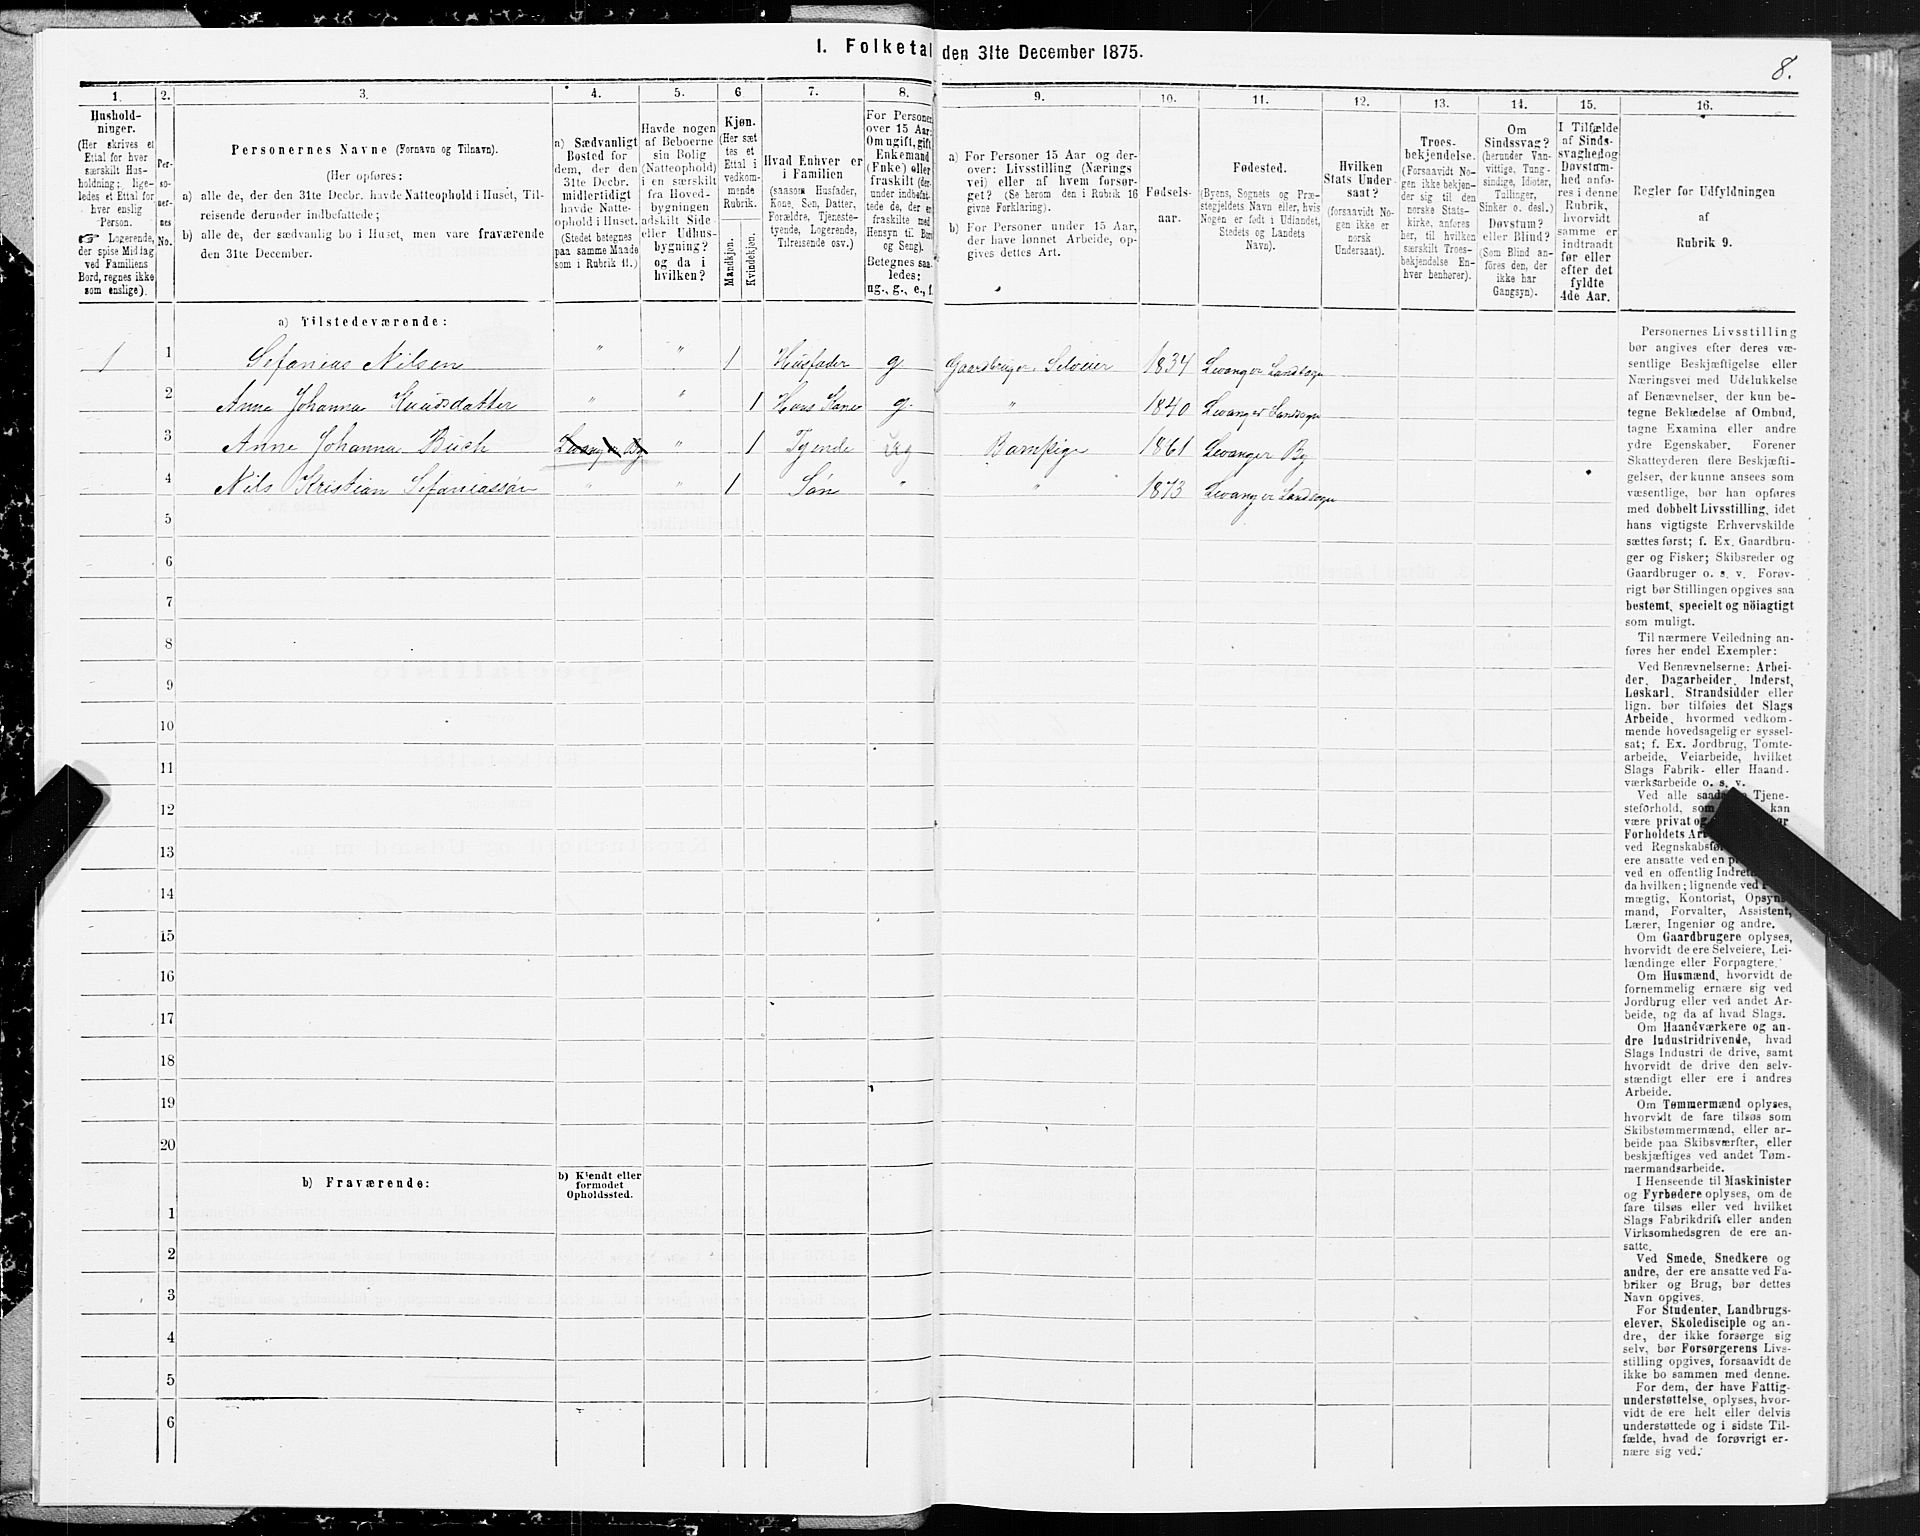 I. Folketal den 31te December 1875.
8.
1.
Hushold-
ninger.
(Her skrives et
Ettal for hver
særskilt Hus-
holdning; lige-
ledes et Ettal for
hver enslig
Person.
☞ Logerende,
der spise Middag
ved Familiens
Bord, regnes ikke
som enslige).
2.
Per-
so-
ner-
nes
No.
3.
Personernes Navne (Fornavn og Tilnavn).
(Her opføres:
a) alle de, der den 31te Decbr. havde Natteophold i Huset, Til-
reisende derunder indbefattede;
b) alle de, der sædvanlig bo i Huset, men vare fraværende
den 31te December.
4.
a) Sædvanligt
Bosted for
dem, der den
31te Decbr.
midlertidigt
havde Natte-
ophold i Huset.
(Stedet betegnes
paa samme Maade
som i Rubrik 11.)
5.
Havde nogen
af Beboerne
sin Bolig
(Natteophold)
i en særskilt
fra Hoved-
bygningen
adskilt Side-
eller Udhus-
bygning?
og da i
hvilken?
6
Kjøn.
(Her sæt-
tes et
Ettal i
vedkom-
mende
Rubrik.
Mandkjøn.
Kvindekjøn.
7.
Hvad Enhver er
i Familien
(saasom Husfader,
Kone, Søn, Datter,
Forældre, Tjeneste-
tyende, Logerende,
Tilreisende osv.)
8.
For Personer
over 15 Aar:
Om ugift, gift,
Enkemand
(Enke) eller
fraskilt (der-
under indbefat-
tede de, der er
fraskilte med
Hensyn til Bord
og Seng).
Betegnes saa-
ledes:
ug., g., e., f.
9.
a) For Personer 15 Aar og der-
over: Livsstilling (Nærings
vei) eller af hvem forsør-
get? (Se herom den i Rubrik 16
givne Forklaring).
b) For Personer under 15 Aar,
der have lønnet Arbeide, op-
gives dettes Art.
10.
Fødsels-
aar.
11.
Fødested.
(Byens, Sognets og Præ-
stegjeldets Navn eller, hvis
Nogen er født i Udlandet,
Stedets og Landets
Navn).
12.
Hvilken
Stats Under-
saat?
(forsaavidt No-
gen ikke er
norsk
Undersaat).
13.
Troes-
bekjendelse.
(Forsaavidt No-
gen ikke bekjen-
der sig til den
norske Stats-
kirke, anføres
her, til hvilken
særskilt Troes-
bekjendelse En-
hver henhører).
14.
Om
Sindssvag?
(herunder Van-
vittige, Tung-
sindige, Idioter,
Tullinger,
Sinker o. desl.)
Døvstum?
eller Blind?
(Som Blind an-
føres den, der
ikke har
Gangsyn).
15.
I Tilfælde
af Sinds-
svaghed og
Døvstum-
hed anfø-
res i denne
Rubrik,
hvorvidt
samme er
indtraadt
før eller
efter det
fyldte
4de Aar.
16.
Regler for Udfyldningen
af
Rubrik 9.
a) Tilstedeværende:
1 1 Sefanias Nilsen " " 1 Husfader g Gaardbruger, Selveier 1834 Levanger Landsogn
2 Anne Johanna Knudsdatter " " 1 Hans Kone g. " 1840 Levanger Landsogn
3 Anne Johanna Busch Levanger By " 1 Tyende ug Barnepige 1861 Levanger By
4 Nils Kristian Sefaniassøn " " 1 Søn " " 1873 Levanger Landsogn
5
6
7
8
9
10
11
12
13
14
15
16
17
18
19
20
b) Fraværende:
b) Kjendt eller
formodet
Opholdssted.
1
2
3
4
5
6
Personernes Livsstilling
bør angives efter deres væ-
sentlige Beskjæftigelse eller
Næringsvei med Udelukkelse
af Benævnelser, der kun be-
tegne Beklædelse af Ombud,
tagne Examina eller andre
ydre Egenskaber. Forener
Skatteyderen flere Beskjæfti-
gelser, der kunne ansees som
væsentlige, bør han opføres
med dobbelt Livsstilling, idet
hans vigtigste Erhvervskilde
sættes først; f. Ex. Gaardbru-
ger og Fisker; Skibsreder og
Gaardbruger o. s. v. Forøv-
rigt bør Stillingen opgives saa
bestemt, specielt og nöiagtigt
som muligt.
Til nærmere Veiledning an-
føres her endel Exempler:
Ved Benævnelserne: Arbei-
der, Dagarbeider, Inderst,
Løskarl, Strandsidder eller
lign. bør tilføies det Slags
Arbeide, hvormed vedkom-
mende hovedsagelig er syssel-
sat; f. Ex. Jordbrug, Tomte-
arbeide, Veiarbeide, hvilket
Slags Fabrik- eller Haand-
værksarbeide o. s. v.
Ved alle Tjene-
steforhold, som kan
være privat og
Forholdets
ved
ere ansatte ved en
ved en offentlig
da hvilken; lignende ved
mægtig, Kontorist,
mand, Forvalter, Assistent,
Lærer, Ingeniør og andre.
Om Gaardbrugere oplyses,
hvorvidt de ere Selveiere, Lei-
lændinge eller Forpagtere.
Om Husmænd, hvorvidt de
fornemmelig ernære sig ved
Jordbrug eller ved andet Ar-
beide, og da af hvad Slags.
Om Haandværkere og an-
dre Industridrivende, hvad
Slags Industri de drive, samt
hvorvidt de drive den selv-
stændigt eller ere i andres
Arbeide.
Om Tømmermænd oplyses,
hvorvidt de fare tilsøs som
Skibstømmermænd, eller ar-
beide paa Skibsværfter, eller
beskjæftiges ved andet Tøm-
mermandsarbeide.
I Henseende til Maskinister
og Fyrbødere oplyses, om de
fare tilsøs eller ved hvilket
Slags Fabrikdrift eller anden
Virksomhedsgren de ere an-
satte.
Ved Smede, Snedkere og
andre, der ere ansatte ved Fa-
briker og Brug, bør dettes
Navn opgives.
For Studenter, Landbrugs-
elever, Skoledisciple og an-
dre, der ikke forsørge sig
selv, bør Forsørgerens Livs-
stilling opgives, forsaavidt de
ikke bo sammen med denne.
For dem, der have Fattig-
understøttelse, oplyses, hvor-
vidt de ere helt eller delvis
understøttede og i sidste Til-
fælde, hvad de forøvrigt er-
nære sig ved.